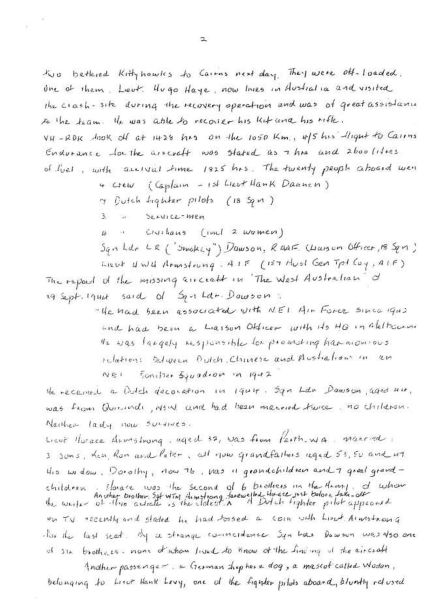 2
two battered Kittyhawks to Cairns next day. They were off-loaded.
One of them, Lieut. Hugo Haye, now lives in Australia and visited
the crash-site during the recovery operation and was of great assistance
to the team. He was able to recover his kit and his rifle.
VH-RDK took off at 1428 hrs on the 1050 Km, 4/5 hrs flight to Cairns
Endurance for the aircraft was stated as 7 hrs and 2600 litres
of fuel, with arrival time 1825 hrs. The twenty people aboard were
4 crew (Captain - 1st Lieut Hank Daanen)
7 Dutch fighter pilots (18 Sqn)
3 " service-men
4 " civilians (incl 2 women)
Sqn Ldr L R ("Smokey") Dawson, RAAF (Liaison Officer, 18 Sqn)
Lieut H W Armstrong, A.I.F (127 Aust Gen Tpt Coy, A.I.F)
The report of the missing aircraft in 'The West Australian' of
29 Sept. 1944 said of Sqn Ldr. Dawson:
"He had been associated with N.E.I Air Force since 1942
and had been a Liaison Officer with its HQ in Melbourne
He was largely responsible for promoting harmonious
relations between Dutch, Chinese and Australians in an
N E I Squadron in 1942
He received a Dutch decoration in 1944. Sqn Ldr Dawson, aged 44,
was from Quirindi, NSW and had been married twice, no children.
Neither lady now survives.
Lieut Horace Armstrong, aged 32, was from Perth, WA, married,
3 sons, Ken, Ron and Peter, all now grandfathers aged 53, 50 and 47
His widow, Dorothy, now 76, has 11 grandchildren and 7 great grand-
children. Horace was the second of 6 brothers in the Army, of whom
Another brother, Sgt W J M Armstrong farewelled Horace just before take-off
the writer of this article is the eldest. A Dutch fighter pilot appeared
on TV recently and stated he had tossed a coin with Lieut Armstrong
for the last seat. By a strange coincidence Sqn Ldr Dawson was also one
of six brothers, none of whom lived to know of the finding of the aircraft
Another passenger, a German shepherd dog, a mascot called Wodan,
belonging to Lieut Hank Levy, one of the fighter pilots aboard, bluntly refused